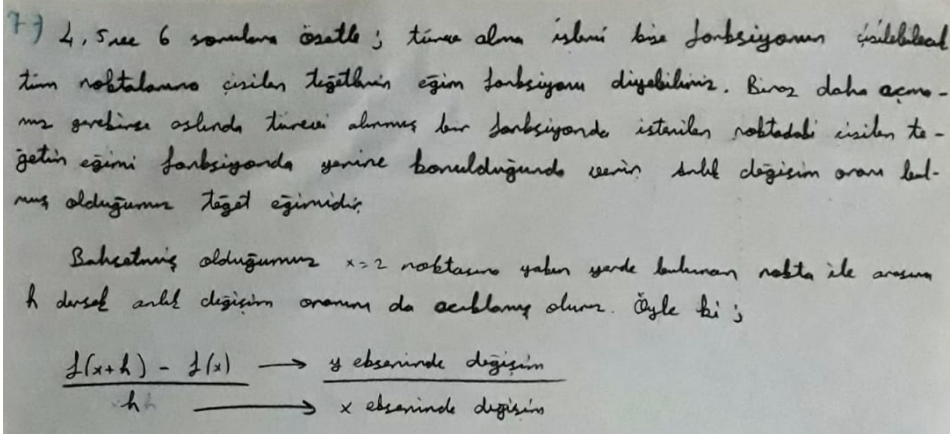 7-) 4, 5 ve 6 sorulara özetle; türev alma işlemi bize fonksiyonun çizilebilecek
tüm noktalarına çizilen teğetlerin eğim fonksiyonu diyebiliriz. Biraz daha açma-
mız gerekirse aslında türevi alınmış bir fonksiyonda istenilen noktadaki çizilen te-
ğetin eğimi fonksiyonda yerine konulduğunda verir. Anlık değişim oranı bul-
muş olduğumuz teğet eğimidir.
Bahsetmiş olduğumuz x=2 noktasına yakın yerde bulunan nokta ile arasına
h dersek anlık değişim oranını da açıklamış oluruz. Öyle ki;
f(x+h) - f(x) → y ekseninde değişim
h → x ekseninde değişim